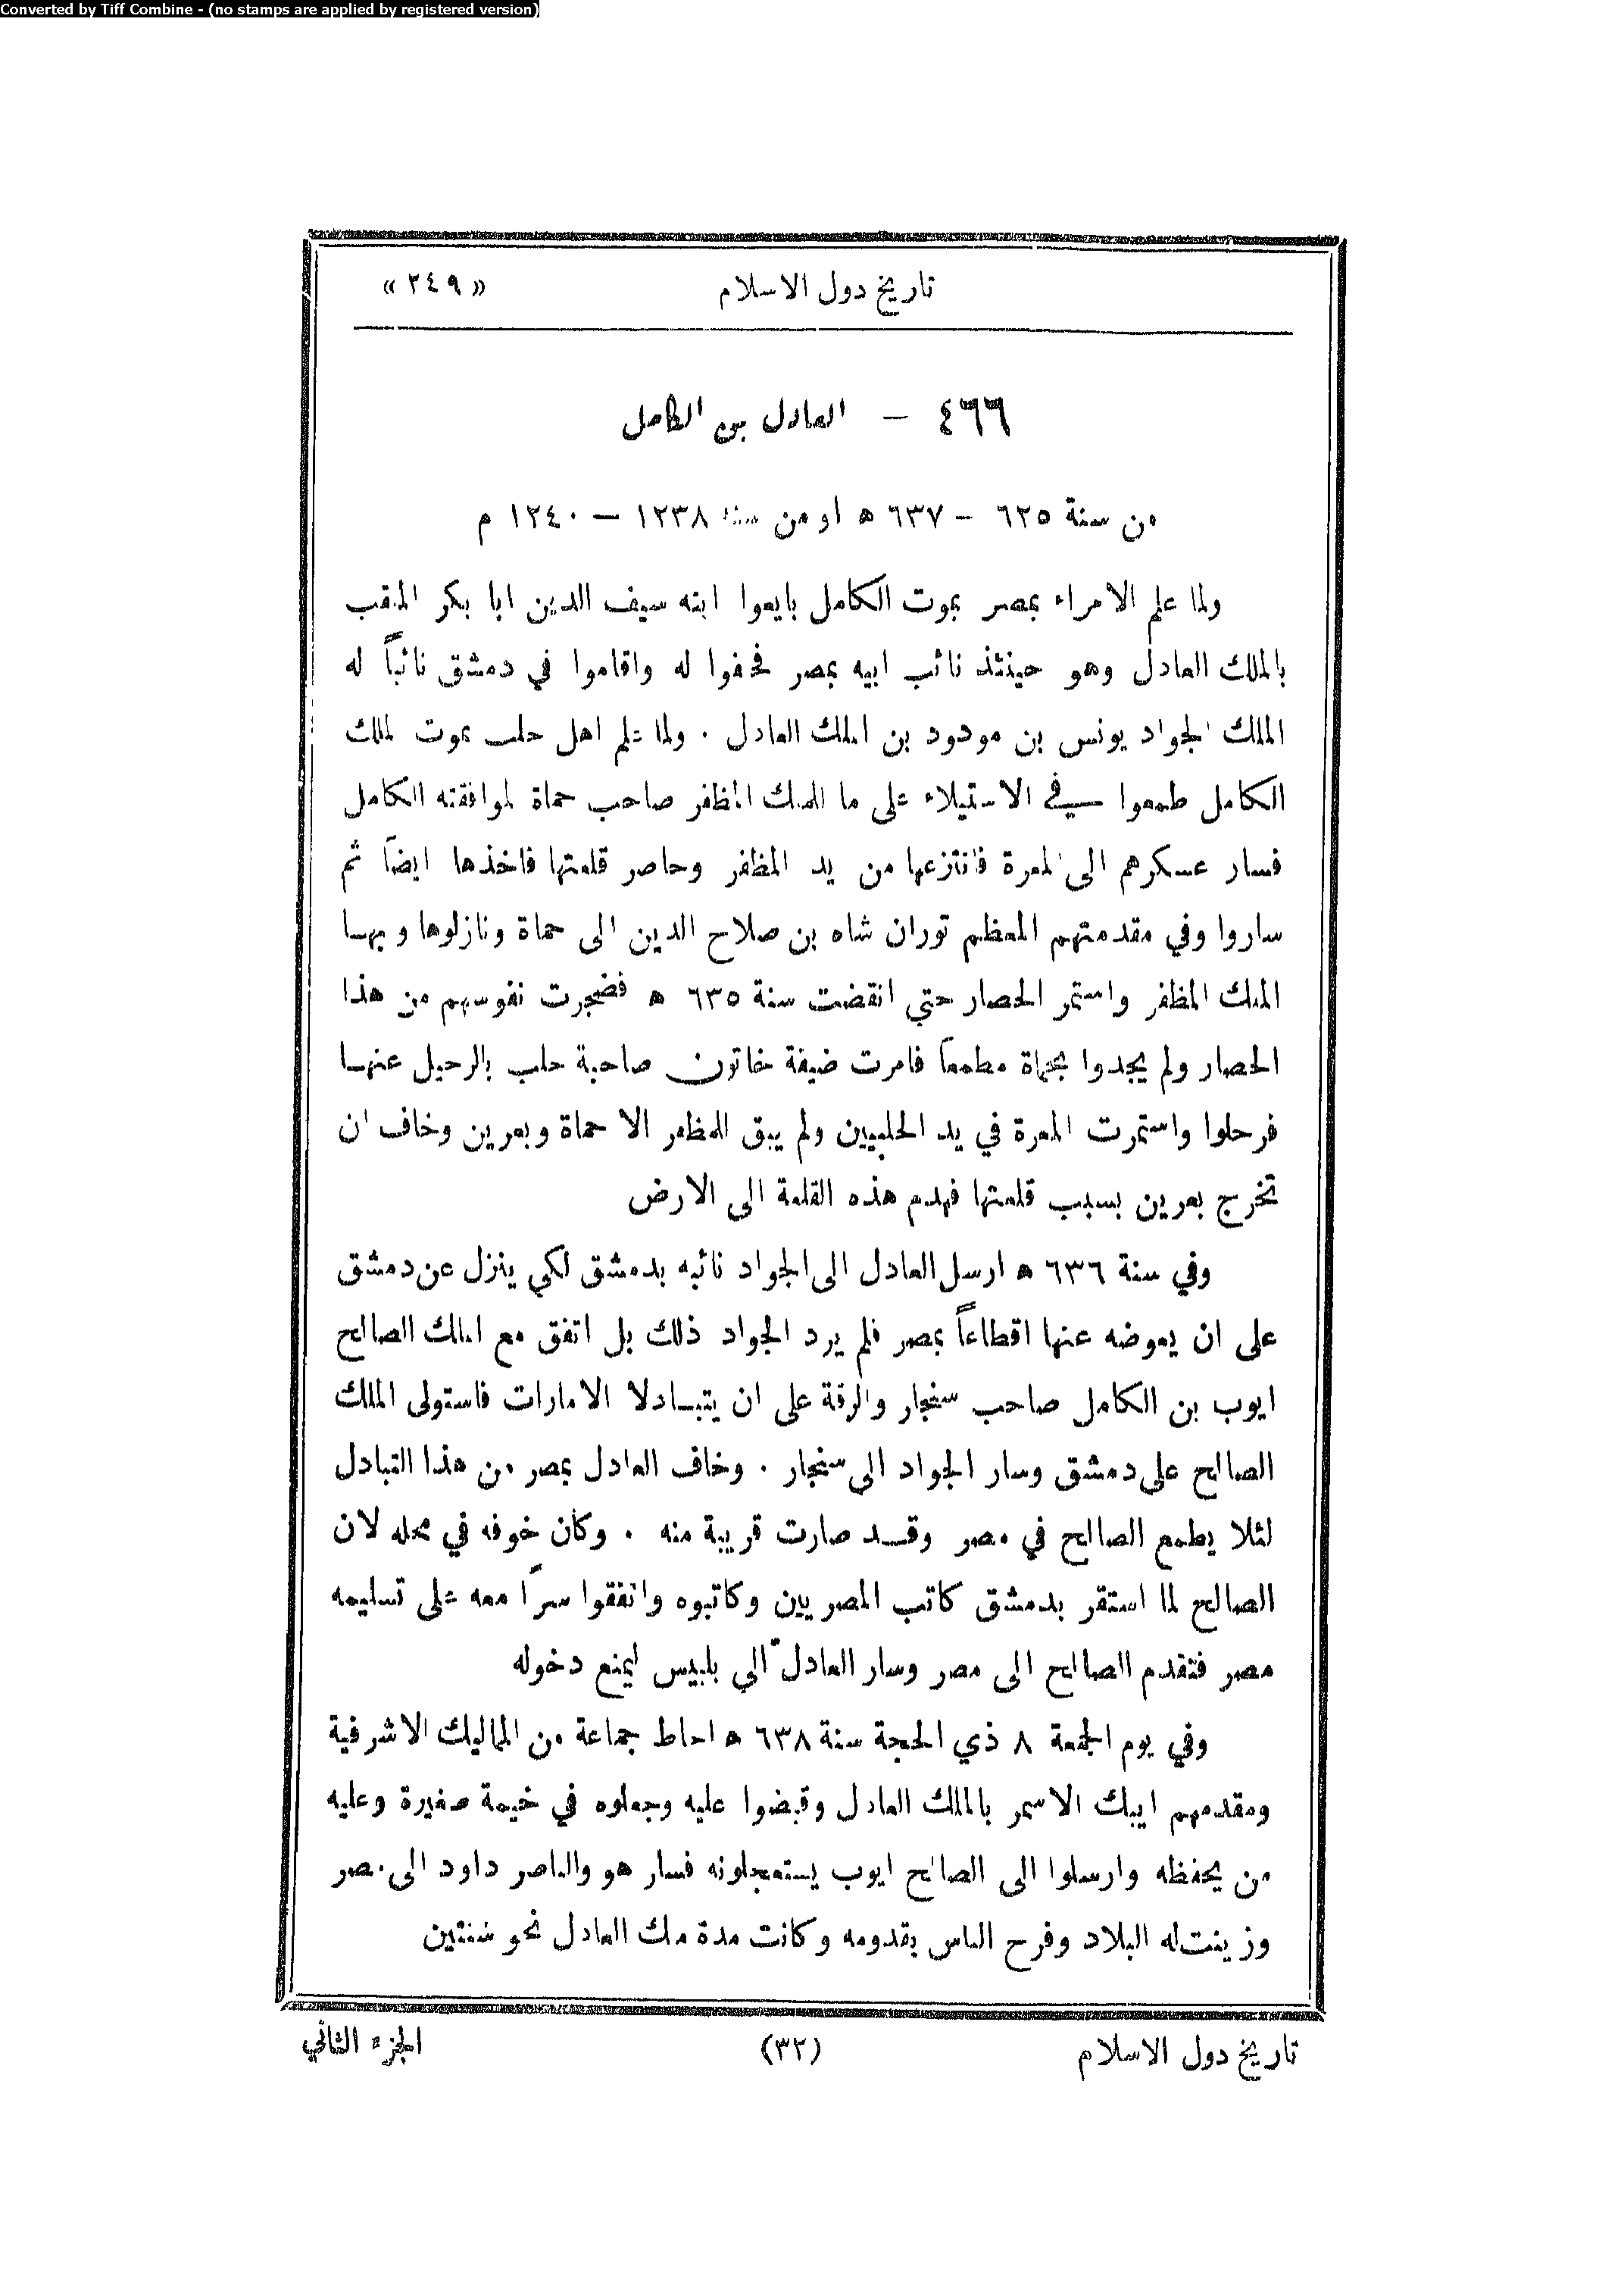 Converted by Tiff Combine - (no stamps are applied by registered version)
تاريخ دول الاسلام « ٢٤٩ »
٤٦٦ – العادل بن الكامل
من سنة ٦٢٥ – ٦٣٧ ه او من سنة ١٢٣٨ – ١٢٤٠ م
ولما علم الامراء بمصر بموت الكامل بايعوا ابنه سيف الدين ابا بكر الملقب
بالملك العادل وهو حينئذ نائب ابيه بمصر فحلفوا له واقاموا في دمشق نائباً له
الملك الجواد يونس بن مودود بن الملك العادل . ولما علم اهل حلب بموت الملك
الكامل طمعوا في الاستيلاء على ما للملك المظفر صاحب حماة لموافقته الكامل
فسار عسكرهم الى المعرة فانتزعها من يد المظفر وحاصر قلعتها فاخذها ايضاً ثم
ساروا وفي مقدمتهم المعظم توران شاه بن صلاح الدين الى حماة ونازلوها وبها
الملك المظفر واستمر الحصار حتي انقضت سنة ٦٣٥ ه فضجرت نفوسهم من هذا
الحصار ولم يجدوا بحماة مطمعاً فامرت ضيفة خاتون صاحبة حلب بالرحيل عنها
فرحلوا واستمرت المعرة في يد الحلبيين ولم يبق للمظفر الا حماة وبعرين وخاف ان
تخرج بعرين بسبب قلعتها فهدم هذه القلعة الى الارض
وفي سنة ٦٣٦ ه ارسل العادل الى الجواد نائبه بدمشق لكي ينزل عن دمشق
على ان يعوضه عنها اقطاعاً بمصر فلم يرد الجواد ذلك بل اتفق مع الملك الصالح
ايوب بن الكامل صاحب سنجار والرقة على ان يتبادلا الامارات فاستولى الملك
الصالح على دمشق وسار الجواد الى سنجار . وخاف العادل بمصر من هذا التبادل
لئلا يطمع الصالح في مصر وقد صارت قريبة منه . وكان خوفه في محله لان
الصالح لما استقر بدمشق كاتب المصريين وكاتبوه واتفقوا سراً معه على تسليمه
مصر فتقدم الصالح الى مصر وسار العادل الي بلبيس ليمنع دخوله
وفي يوم الجمعة ٨ ذي الحجة سنة ٦٣٨ ه احاط جماعة من المماليك الاشرفية
ومقدمهم ايبك الاسمر بالملك العادل وقبضوا عليه وجعلوه في خيمة صغيرة وعليه
من يحفظه وارسلوا الى الصالح ايوب يستعجلونه فسار هو والناصر داود الى مصر
وزينت له البلاد وفرح الناس بقدومه وكانت مدة ملك العادل نحو سنتين
تاريخ دول الاسلام (٣٢) الجزء الثاني